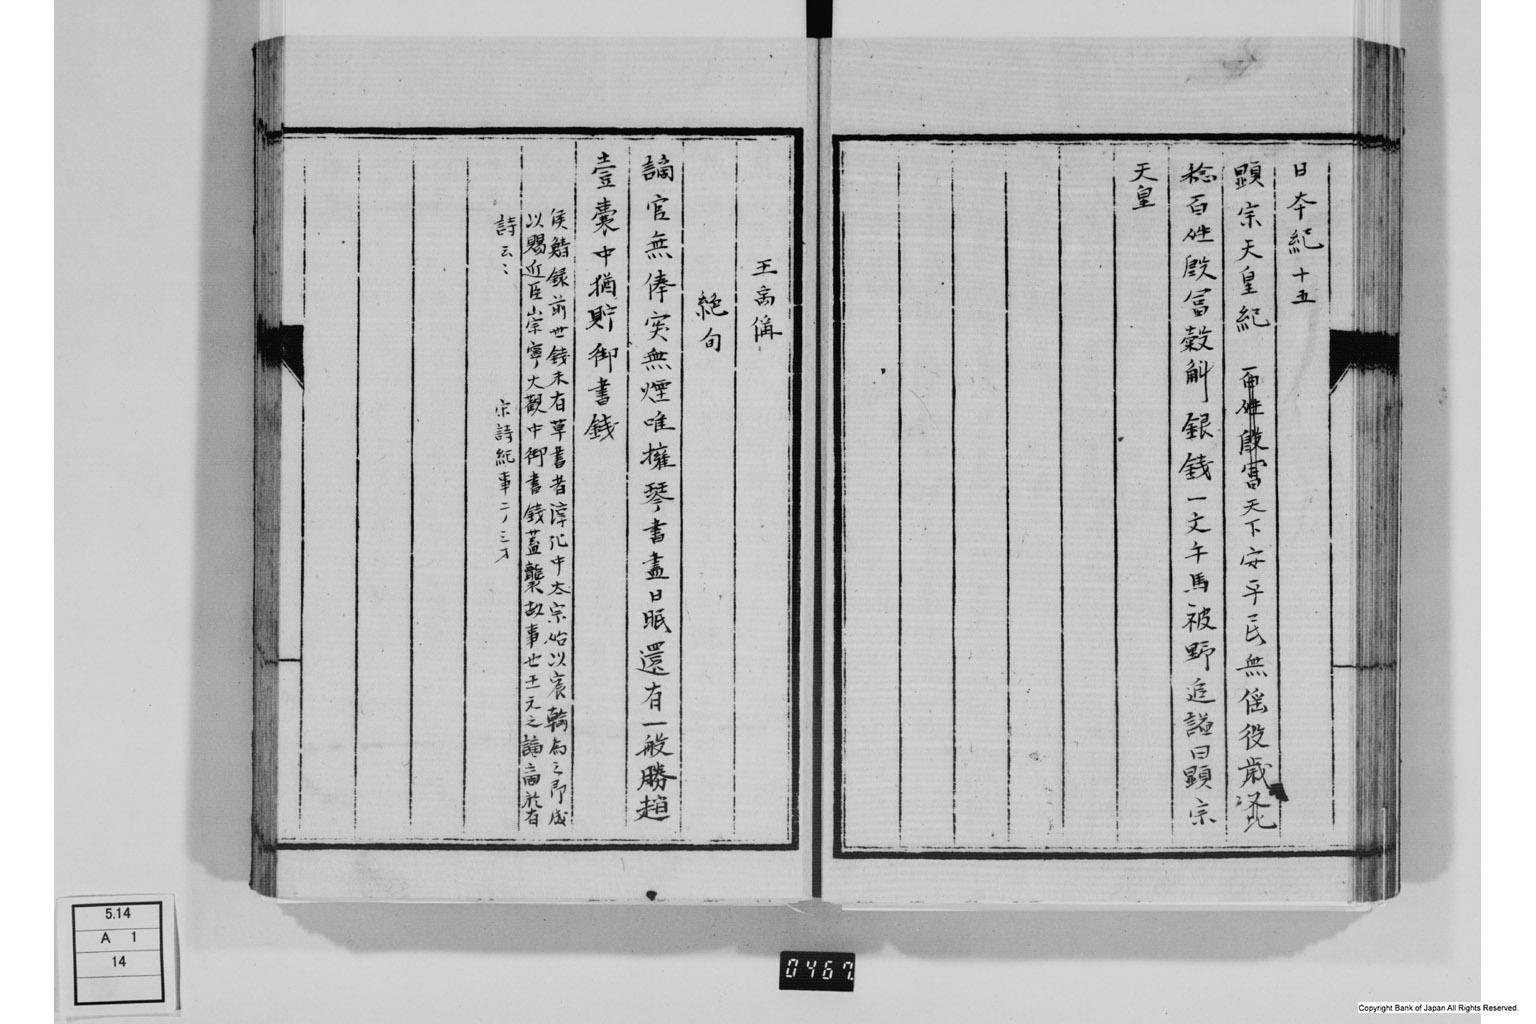 日本紀十五
顕宗天皇紀 百姓殷富天下安平民無徭役歳
稔百姓殷冨穀斛銀銭一文牛馬被野追謚曰顕宗
天皇
王禹偁
絶句
謫官無俸突無煙唯擁琴書盡日眠還有一般勝趙
壹囊中猶貯御書錢
侯鯖録前世錢未有草書者淳化中太宗始以宸翰為之即成
以賜近臣崇寧大觀中御書錢蓋襲故事也王元之謫商於有
詩云〻 宗詩紀事二ノ三才
5.14
A 1
14
0467
Copyright Bank of Japan All Rights Reserved.